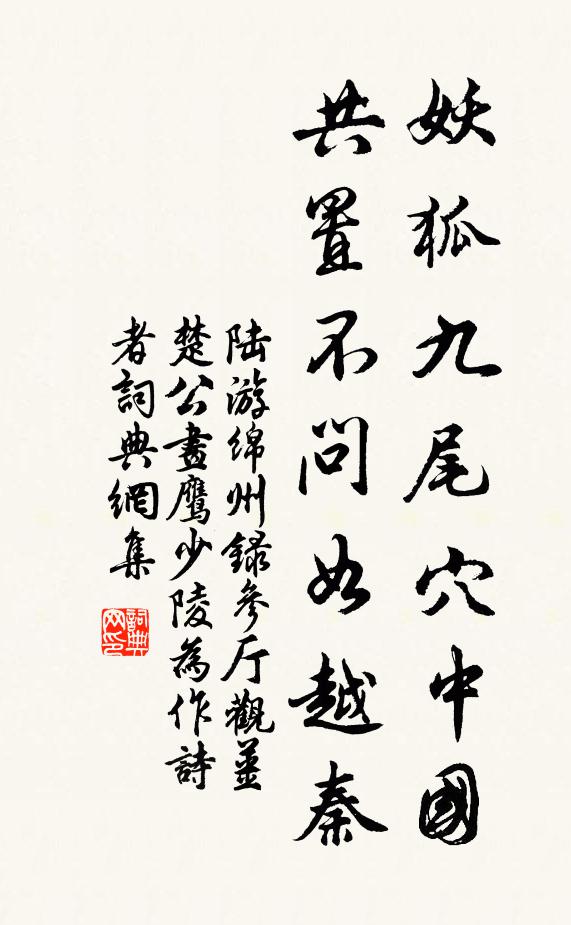 妖狐九尾穴中國
共置不問如越秦
陆游綿州録參厅觀薑
楚公畫鷹少陵為作詩
者詞典網集
詞典
网印